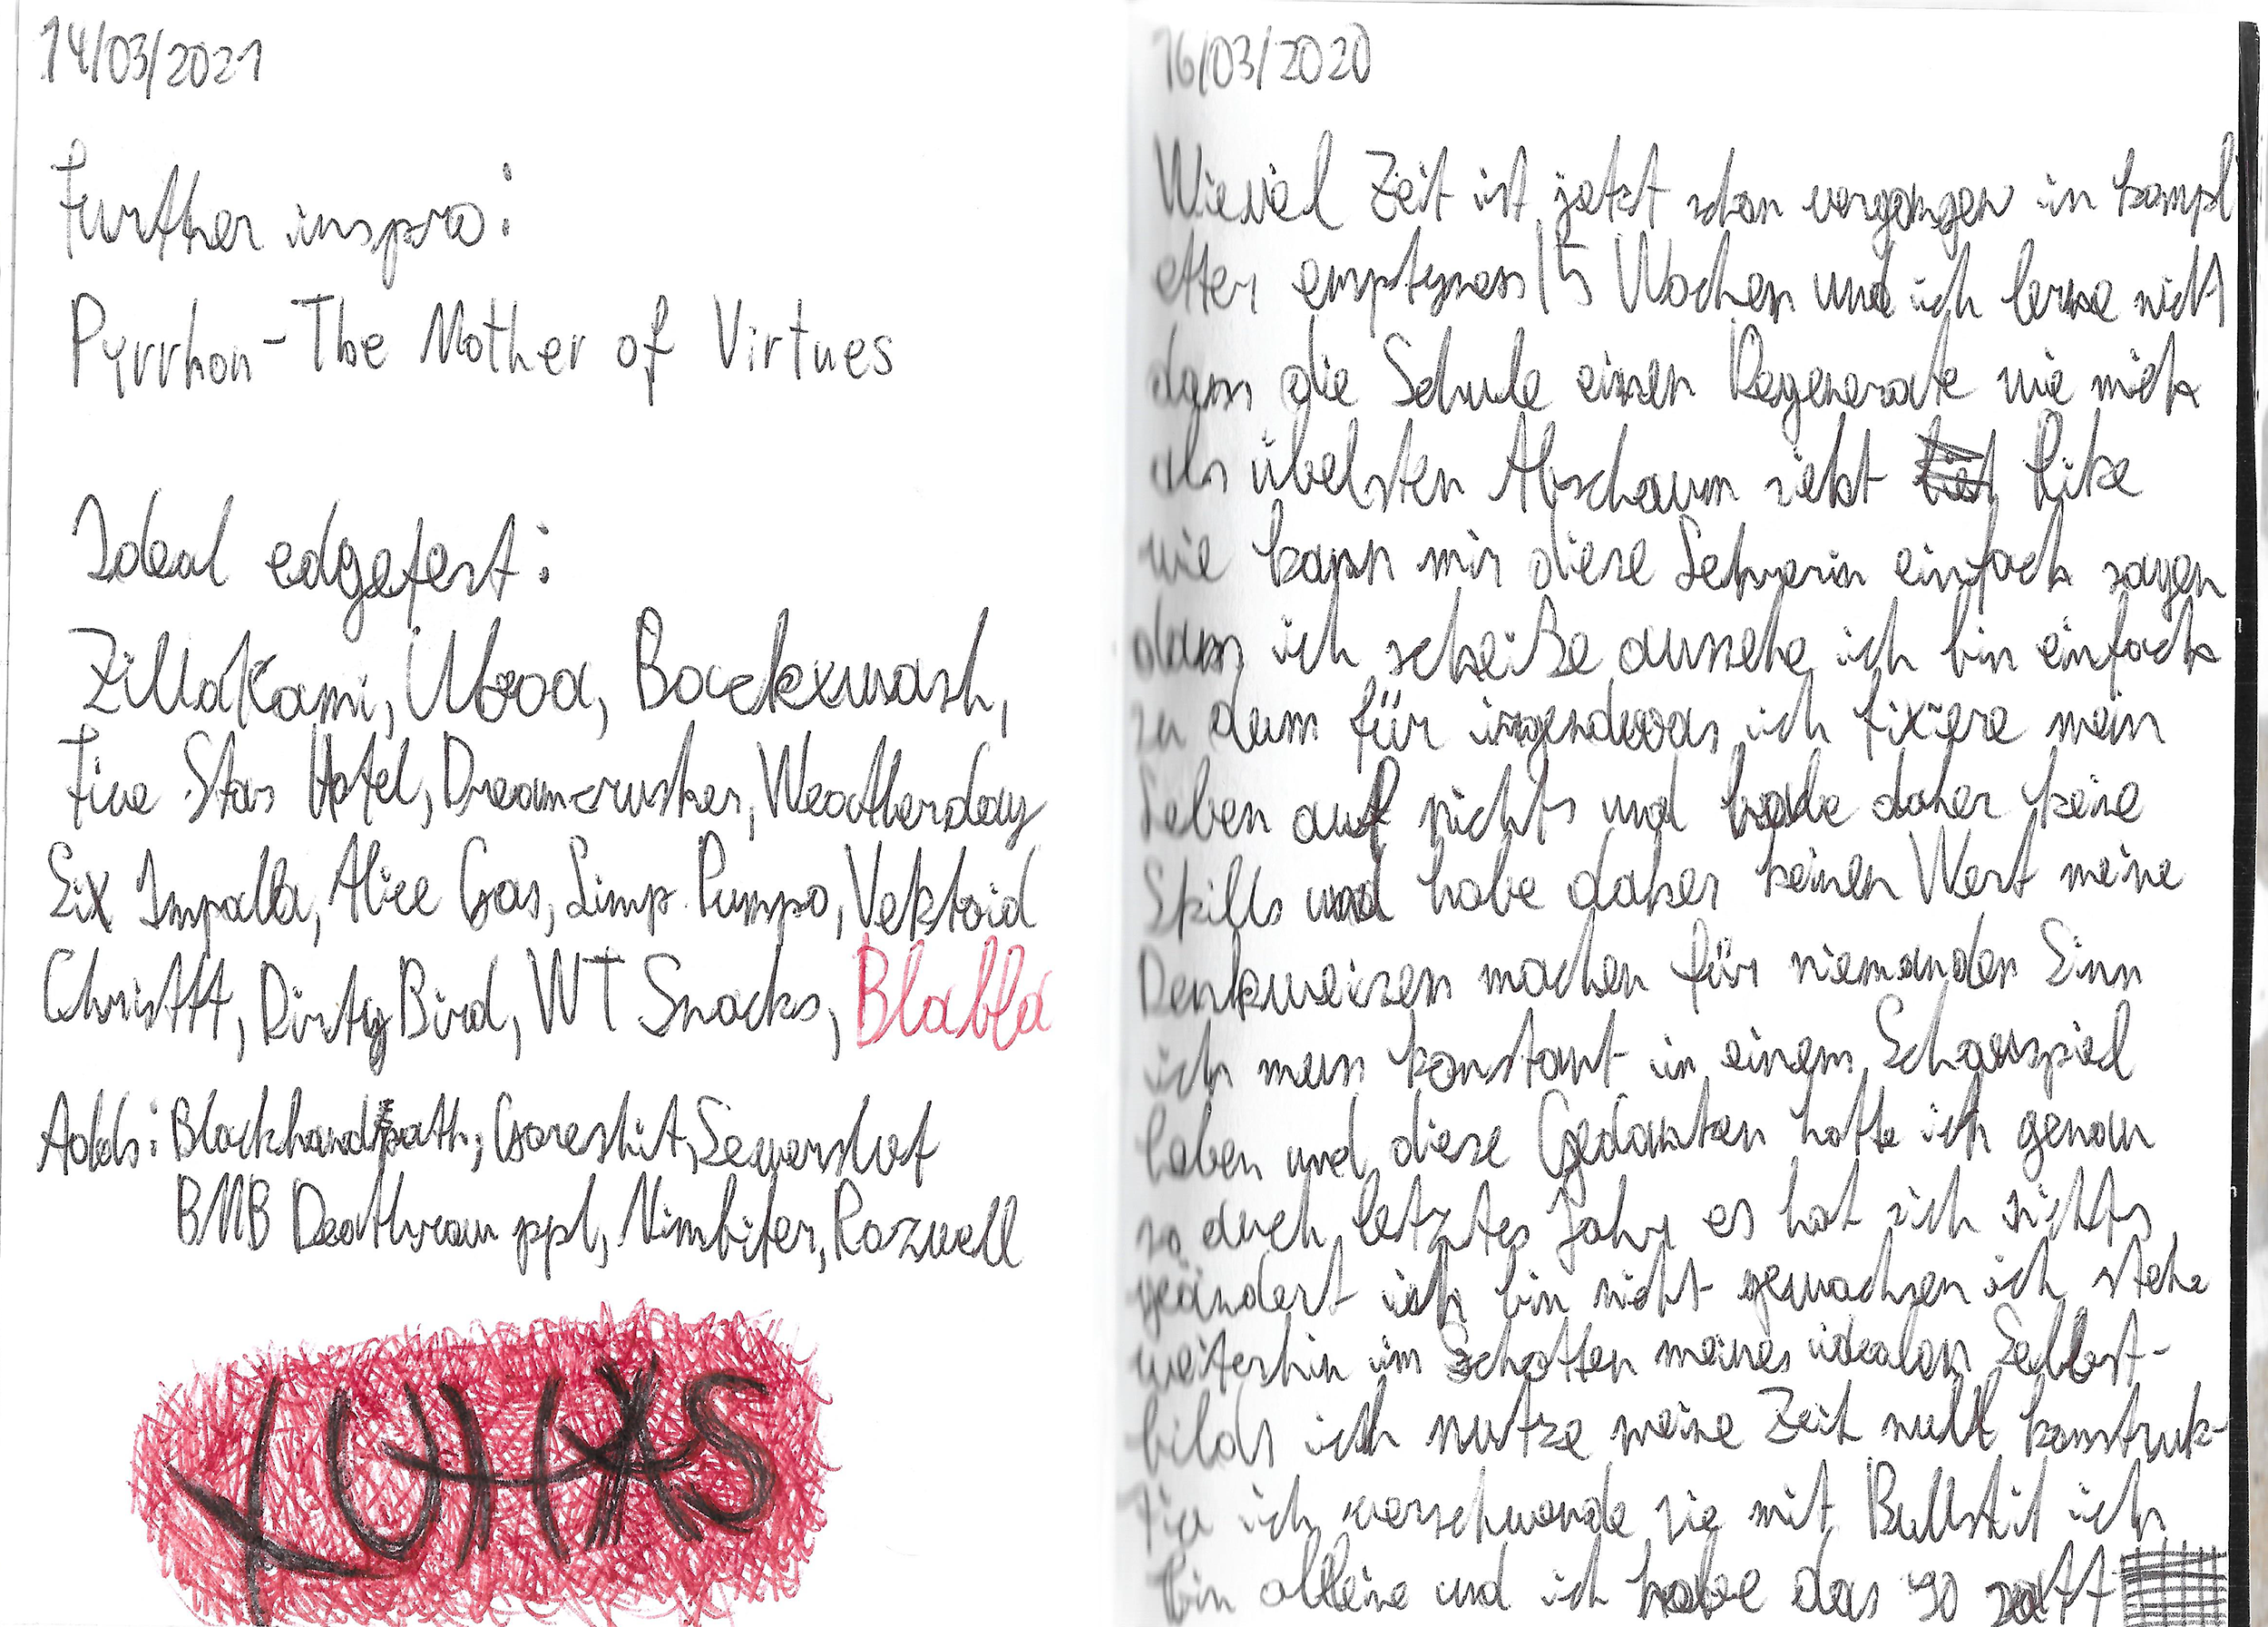 14/03/2021
Further inspro:
Pyrrhon - The Mother of Virtues
Ideal edgefest:
ZillaKami, Uboa, Backxwash,
Five Star Hotel, Dreamcrusher, Weatherday
Six Impalla, Alice Gas, Limp Pumpo, Vektroid
Christtt, Dirty Bird, WT Snacks, Blabla
Adds: Blackhandpath, Goreshit, Sewerslvt
BMB Deathrow ppl, Nimbiter, Rozwell
16/03/2020
Wieviel Zeit ist jetzt schon vergangen in kompl
etter emptyness 15 Wochen und ich lerne nicht
dass die Schule einen Degenerate wie mich
als übelsten Abschaum sieht like
wie kann mir diese Lehrerin einfach sagen
dass ich scheiße aussehe ich bin einfach
zu dum für irgendwas ich fixiere mein
Leben auf nichts und habe daher keine
Skills und habe daher keinen Wert meine
Denkweisen machen für niemanden Sinn
ich muss konstant in einem Schauspiel
leben und diese Gedanken hatte ich genau
so auch letztes Jahr es hat sich nichts
geändert ich bin nicht gewachsen ich stehe
weiterhin im Schatten meines idealen Selbst-
bilds ich nutze meine Zeit null konstruk-
tiv ich verschwende sie mit Bullshit ich
bin alleine und ich habe das so satt